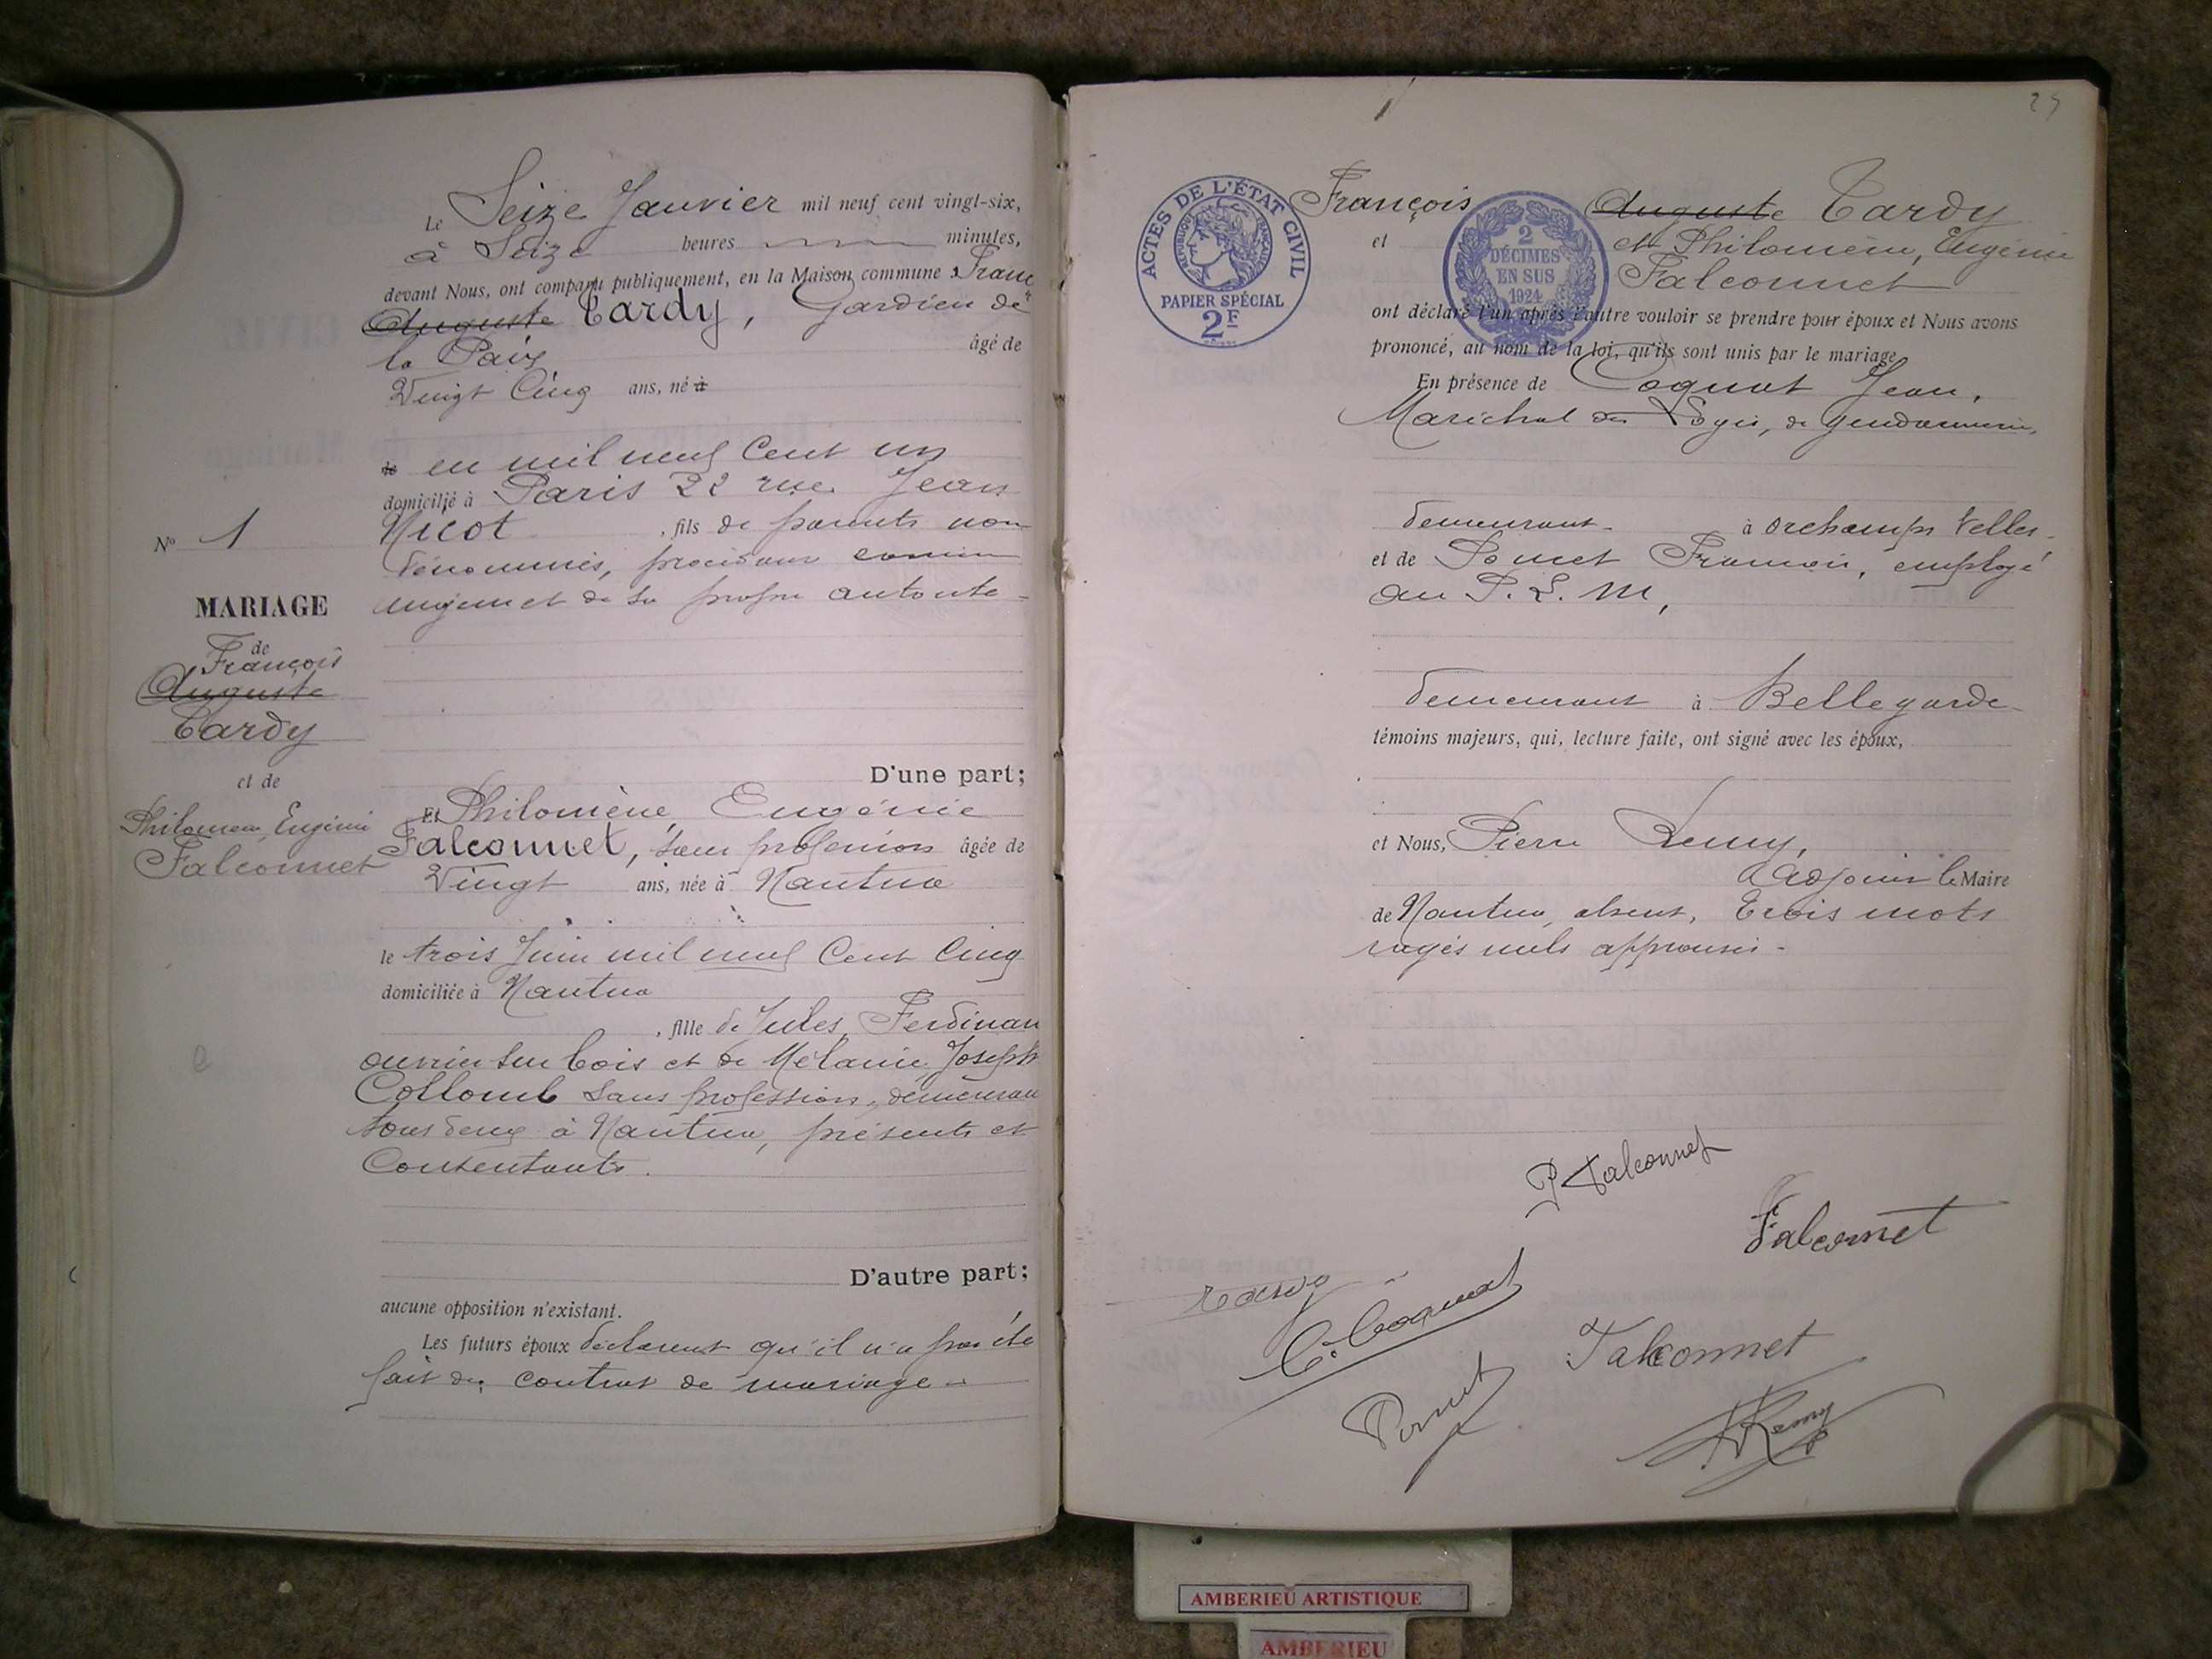 Le Seize Janvier mil neuf cent vingt-six,
à Seize heures minutes,
devant Nous, ont comparu publiquement, en la Maison commune : Franc
Auguste Tardy, Gardien de
la Paix âgé de
Vingt Cinq ans, né à
en mil neuf Cent un
domicilié à Paris 22 rue Jean
Nicot, fils de parents non
dénommés, procédant comme
majeur et de sa propre autorité
N° 1
MARIAGE
de
François
Auguste
Tardy
et de
Philomène, Eugénie
Falconnet
D'une part;
Et Philomène, Eugénie
Falconnet, sans profession âgée de
Vingt ans, née à Nantua
le trois Juin mil neuf Cent Cinq
domiciliée à Nantua
, fille de Jules, Ferdinan
ouvrier sur bois et de Mélanie, Joseph
Collomb sans profession, demeuran
tous deux à Nantua, présents et
Consentants.
D'autre part;
aucune opposition n'existant.
Les futurs époux déclarent qu'il n'a pas été
fait de contrat de mariage
ACTES DE L'ÉTAT CIVIL
RÉPUBLIQUE FRANÇAISE
PAPIER SPÉCIAL
2F
2
DÉCIMES
EN SUS
1924
François Auguste Tardy
et et Philomène, Eugénie
Falconnet
ont déclaré l'un après l'autre vouloir se prendre pour époux et Nous avons
prononcé, au nom de la loi, qu'ils sont unis par le mariage
En présence de Coquat Jean,
Maréchal des Logis, de gendarmerie,
demeurant à Orchamps Velles
et de François, employé
au P. L. M,
demeurant à Bellegarde
témoins majeurs, qui, lecture faite, ont signé avec les époux,
et Nous, Pierre Remy,
Adjoint le Maire
de Nantua, absent, Trois mots
rayés nuls approuvés -
P Falconnet
Falconnet
Tardy
Coquat
Falconnet
Remy
AMBERIEU ARTISTIQUE
AMBERIEU